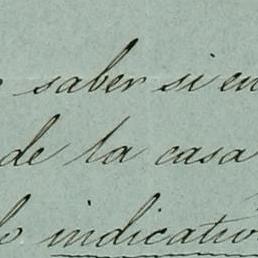 saber si en
de la casa
lo indicativo